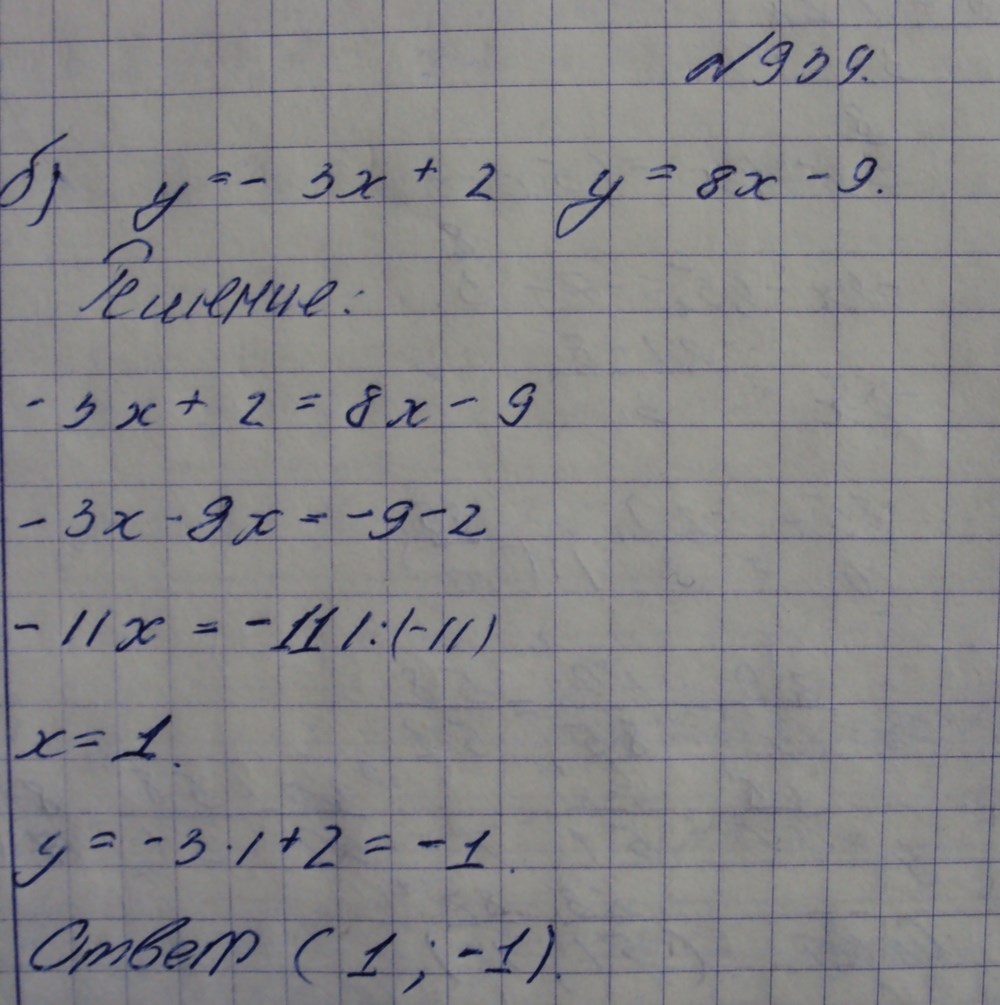 №939.
б) y = - 3x + 2 y = 8x - 9.
Решение:
- 3x + 2 = 8x - 9
- 3x - 8x = -9 - 2
- 11x = -11 | : (-11)
x = 1.
y = -3 · 1 + 2 = -1.
Ответ (1 ; -1).